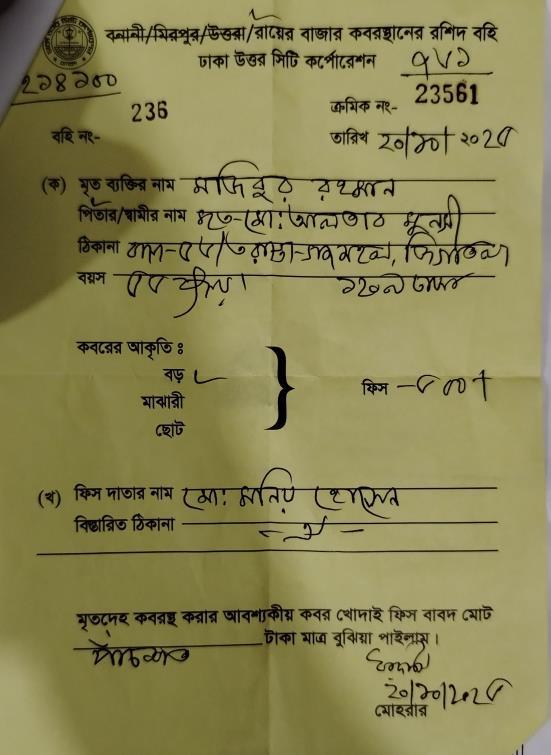 বনানী/মিরপুর/উত্তরা/রায়ের বাজার কবরস্থানের রশিদ বহি
ঢাকা উত্তর সিটি কর্পোরেশন
৭৮১
236
ক্রমিক নং- 23561
বহি নং-
তারিখ ২০/১০/২০২৫
(ক) মৃত ব্যক্তির নাম মজিবুর রহমান
পিতার/স্বামীর নাম মৃত-মো: আলতাব মুন্সী
ঠিকানা
বয়স
কবরের আকৃতি ঃ
বড় ✓
মাঝারী
ছোট
ফিস - ৫০০/
(খ) ফিস দাতার নাম মো: মনির হোসেন
বিস্তারিত ঠিকানা - ঐ -
মৃতদেহ কবরস্থ করার আবশ্যকীয় কবর খোদাই ফিস বাবদ মোট
পাঁচশত টাকা মাত্র বুঝিয়া পাইলাম।
২০/১০/২০২৫
মোহরার